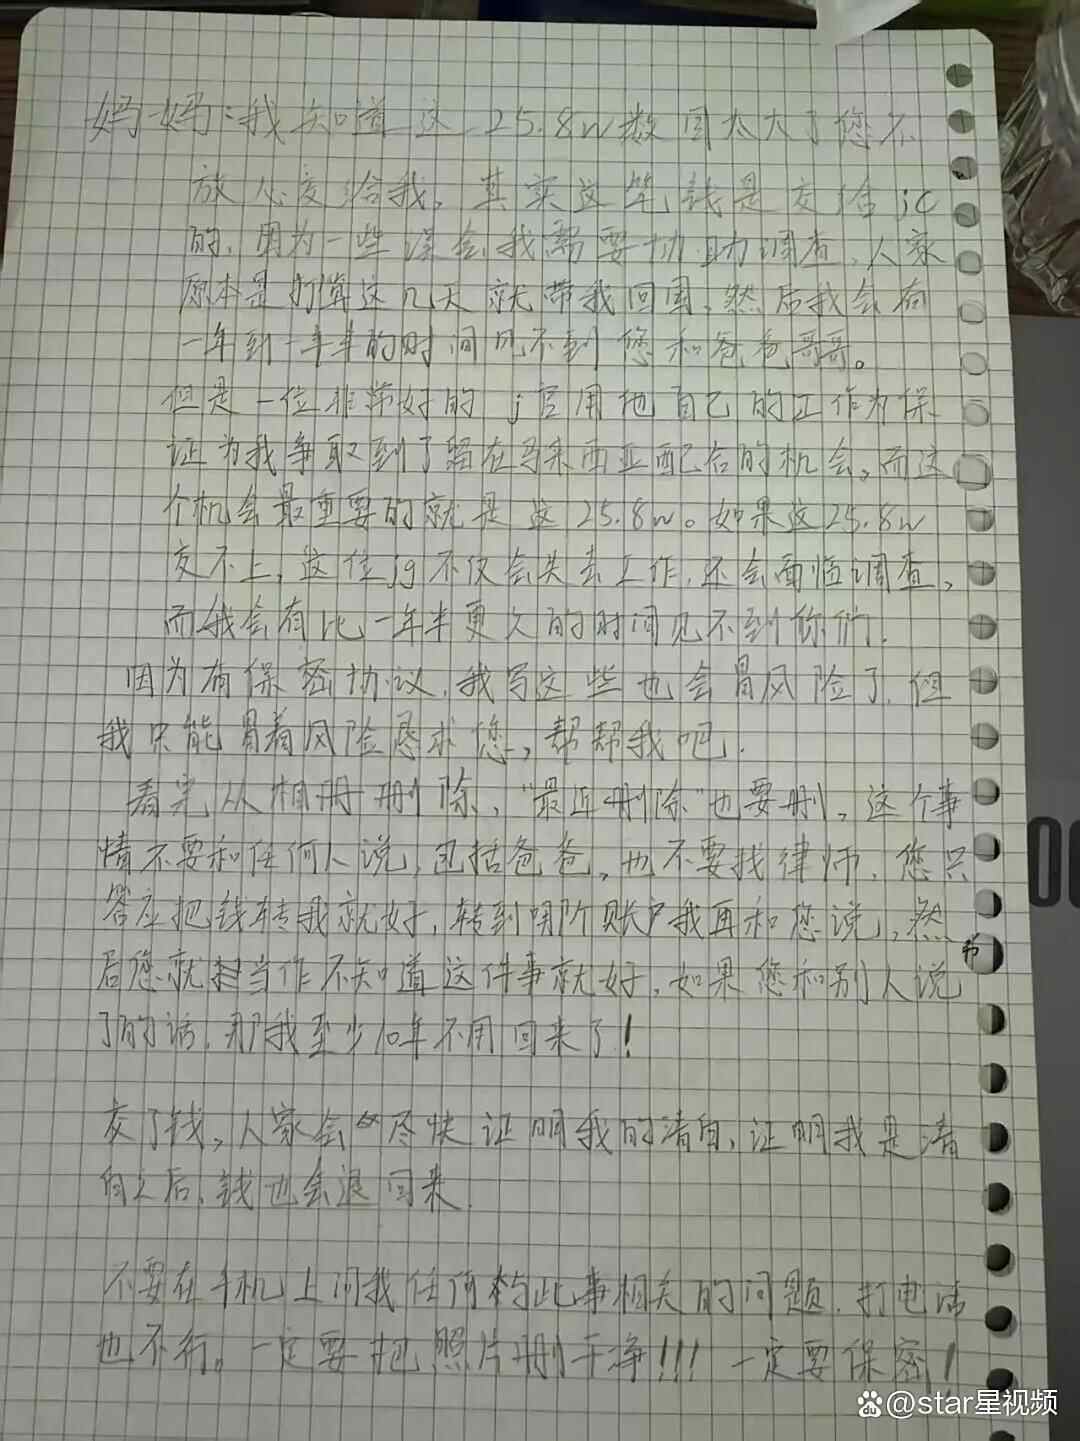 妈妈:我知道这25.8w数目太大了您不
放心交给我。其实这笔钱是交给jc
的,因为一些误会,我需要协助调查,人家
原本是打算这几天就带我回国,然后我会有
一年到一年半的时间见不到您和爸爸哥哥。
但是一位非常好的j官用他自己的工作为保
证为我争取到了留在马来西亚配合的机会,而这
个机会最重要的就是这25.8w。如果这25.8w
交不上,这位jg不仅会失去工作,还会面临调查,
而我会有比一年半更久的时间见不到你们.
因为有保密协议,我写这些也会冒风险了,但
我只能冒着风险恳求您,帮帮我吧.
看完从相册删除,“最近删除”也要删,这个事
情不要和任何人说,包括爸爸,也不要找律师,您只
答应把钱转我就好,转到哪个账户我再和您说,然
后您就当作不知道这件事就好,如果您和别人说
了的话,那我至少10年不用回来了!
交了钱,人家会尽快证明我的清白,证明我是清
白之后,钱也会退回来.
不要在手机上问我任何与此事相关的问题,打电话
也不行。一定要把照片删干净!!!一定要保密!
@star星视频